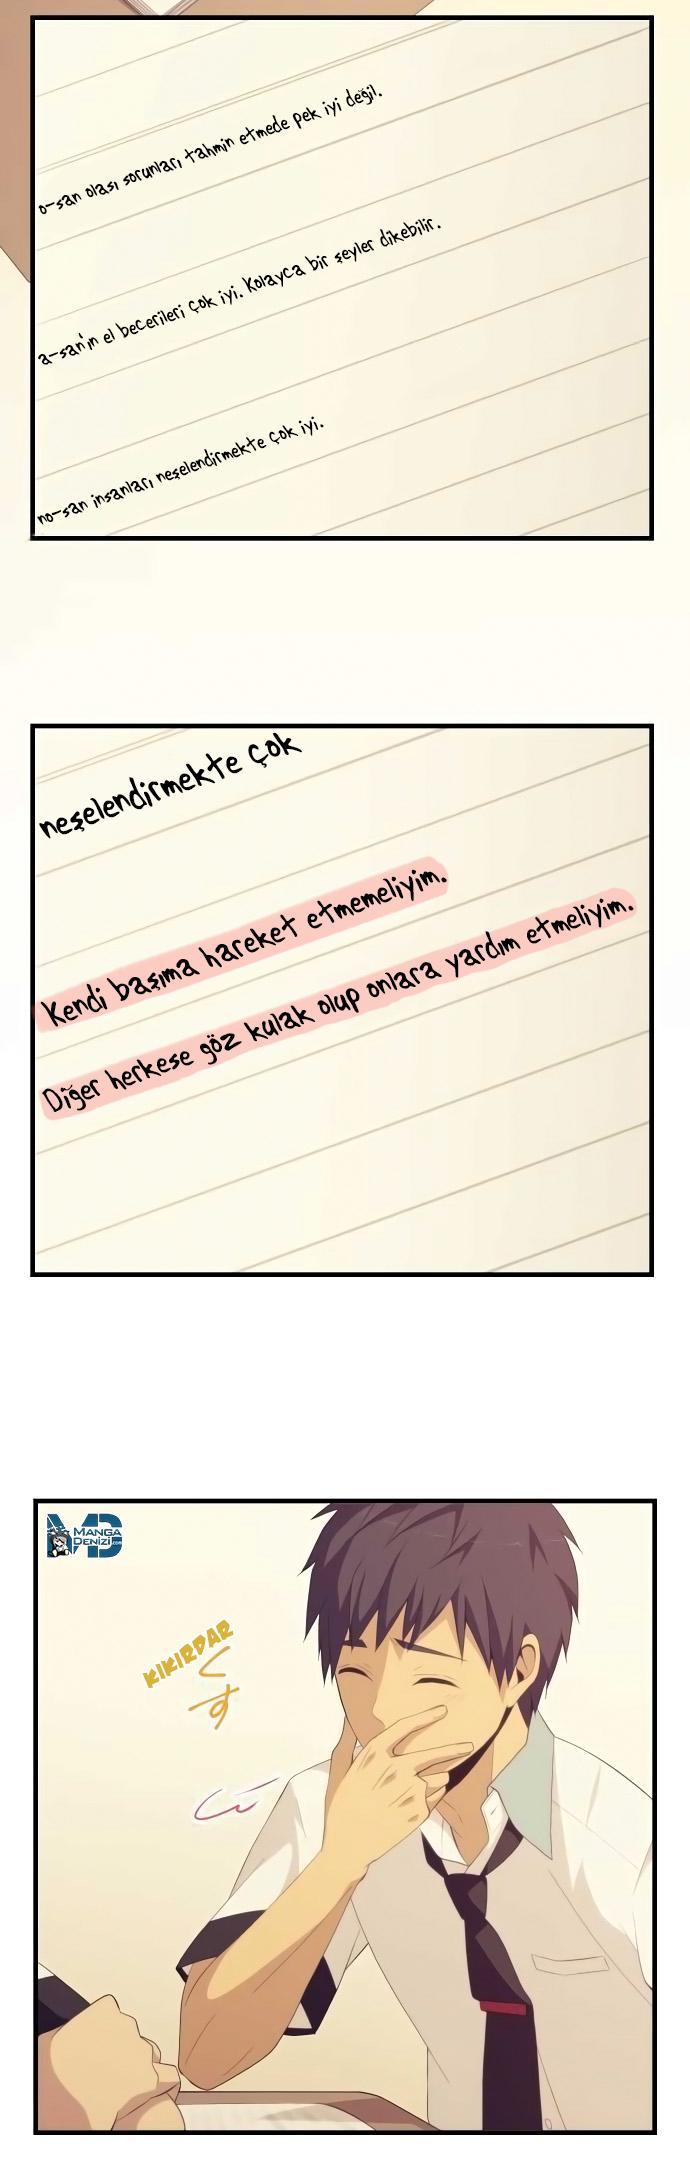 o-san olası sorunları tahmin etmede pek iyi değil.
a-san'ın el becerileri çok iyi. Kolayca bir şeyler dikebilir.
no-san insanları neşelendirmekte çok iyi.
neşelendirmekte çok
Kendi başıma hareket etmemeliyim.
Diğer herkese göz kulak olup onlara yardım etmeliyim.
MD MANGA
DENİZİ.com
KIKIRDAR
くす